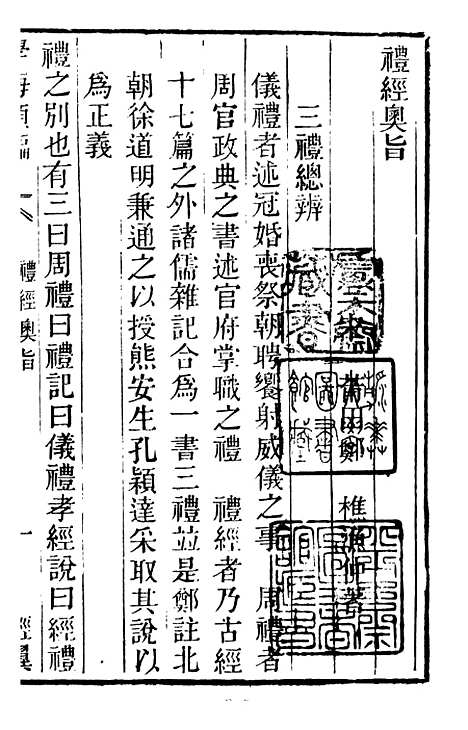 禮經奧旨
莆田鄭樵漁仲著
三禮總辨
儀禮者述冠婚喪祭朝聘饗射威儀之事　周禮者
周官政典之書述官府掌職之禮　禮經者乃古經
十七篇之外諸儒雜記合為一書三禮並是鄭註北
朝徐道明兼通之以授熊安生孔穎達采取其說以
為正義
禮之別也有三曰周禮曰禮記曰儀禮孝經說曰經禮
學海類編
禮經奧旨
一
經翼